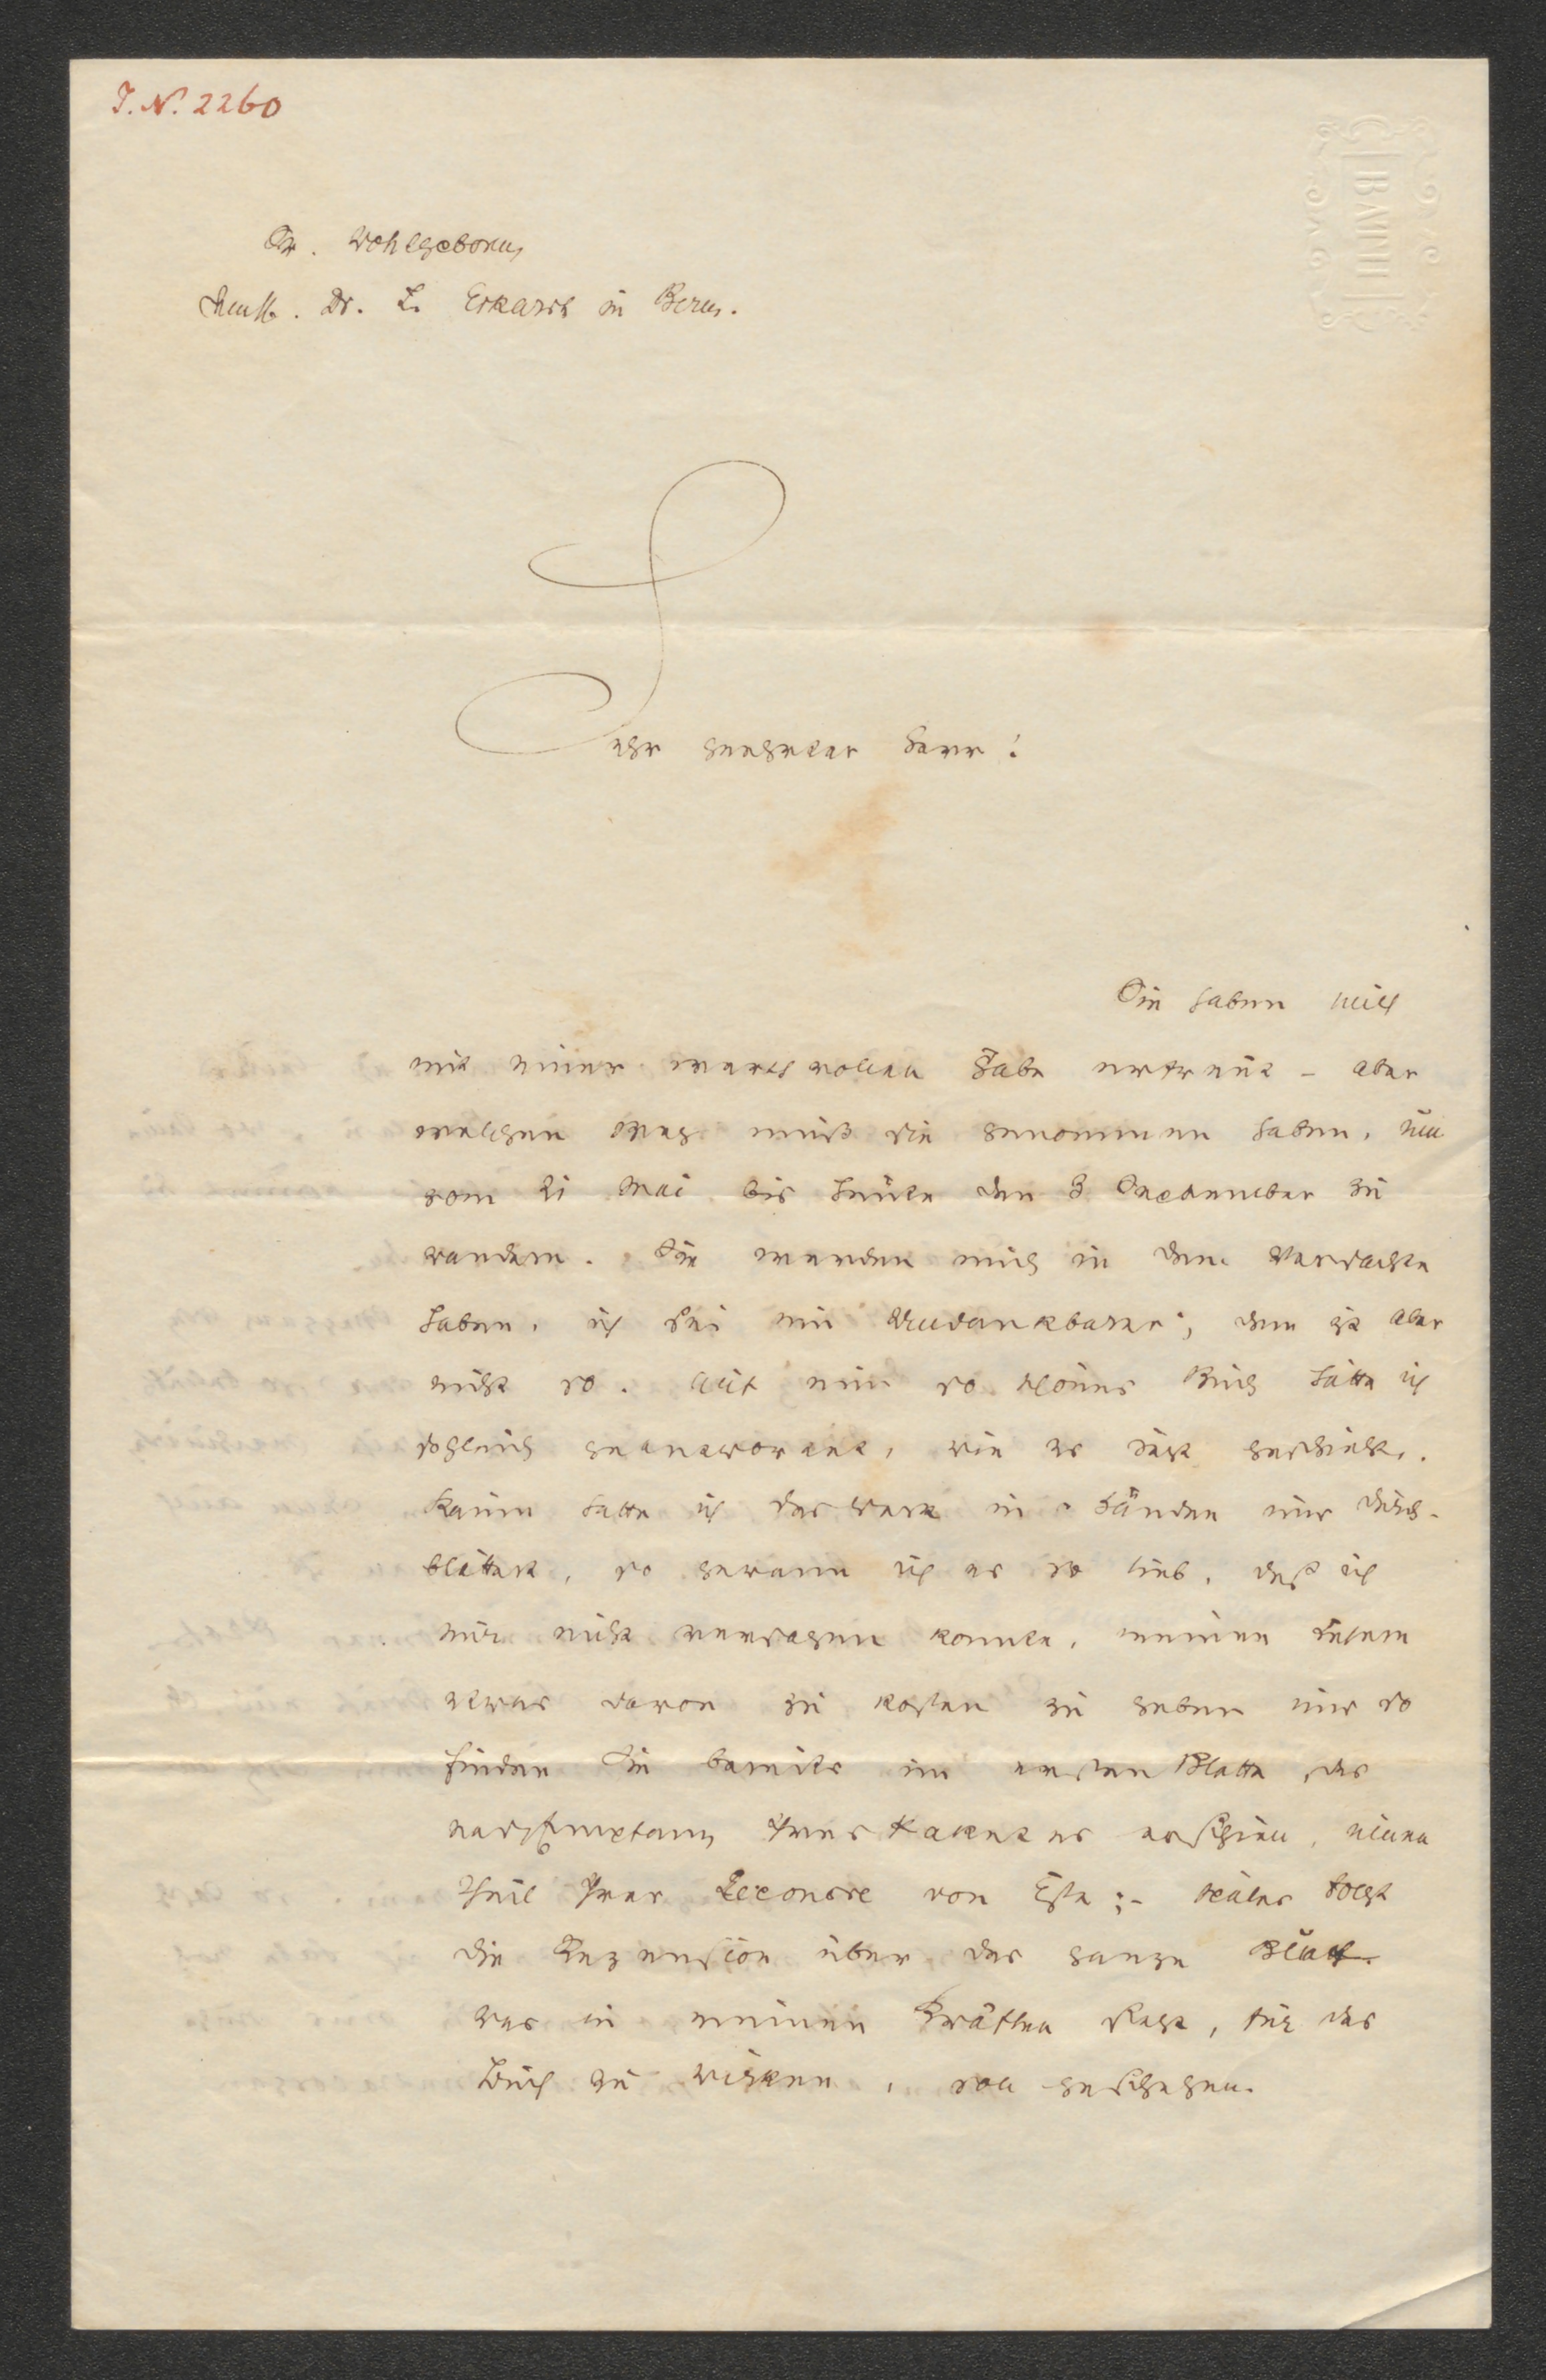 I. N. 2260
BATH
Sr. Wohlgeboren
Herrn Dr. L. Eckardt in Bern.
Sehr geehrter Herr!
Sie haben mich
mit einer werthvollen Gabe erfreut – aber
welchen Weg muß sie genommen haben, um
vom 21 Mai bis heute den 3 September zu
wandern. Sie werden mich in dem Verdachte
haben, ich sei ein Undankbarer; dem ist aber
nicht so. Auf ein so schönes Buch hätte ich
sogleich geantwortet, wie es jetzt geschieht.
Kaum hatte ich das Werk in Händen und durch-
blättert, so gewann ich es so lieb, daß ich
mir nicht versagen konnte, meinen Lesern
etwas davon zu kosten zu geben und so
finden Sie bereits im ersten Blatte, das
nach Empfang Ihres Paketes erschien, einen
Theil Ihrer Leonore von Este; – später folgt
die Rezension über das ganze Blatt.
Was in meinen Kräften steht, für das
Buch zu wirken, soll geschehen.